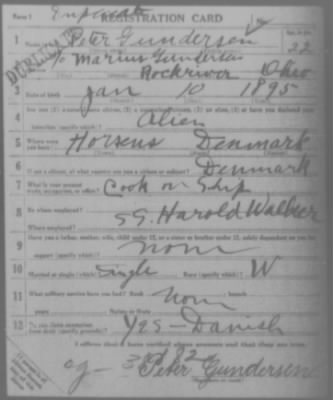 Form 1 Duplicate REGISTRATION CARD No.
DUPLICATE
1 Name in full Peter Gundersen Age, in yrs. 22
2 % Marius Gundersen
Rockriver Ohio
3 Date of birth Jan 10 1895
4 Are you (1) a natural-born citizen, (2) a naturalized citizen, (3) an alien, (4) or have you declared your
intention (specify which)? Alien
5 Where were you born? Horsens Denmark
6 If not a citizen, of what country are you a citizen or subject? Denmark
7 What is your present trade, occupation, or office? Cook on Ship
8 By whom employed? SS. Harold Walker
Where employed?
9 Have you a father, mother, wife, child under 12, or a sister or brother under 12, solely dependent on you for
support (specify which)? None
10 Married or single (which)? Single Race (specify which)? W
11 What military service have you had? Rank None ; branch
years ; Nation or State
12 Do you claim exemption from draft (specify grounds)? Yes - Danish
I affirm that I have verified above answers and that they are true.
Peter Gundersen
(Signature or mark)